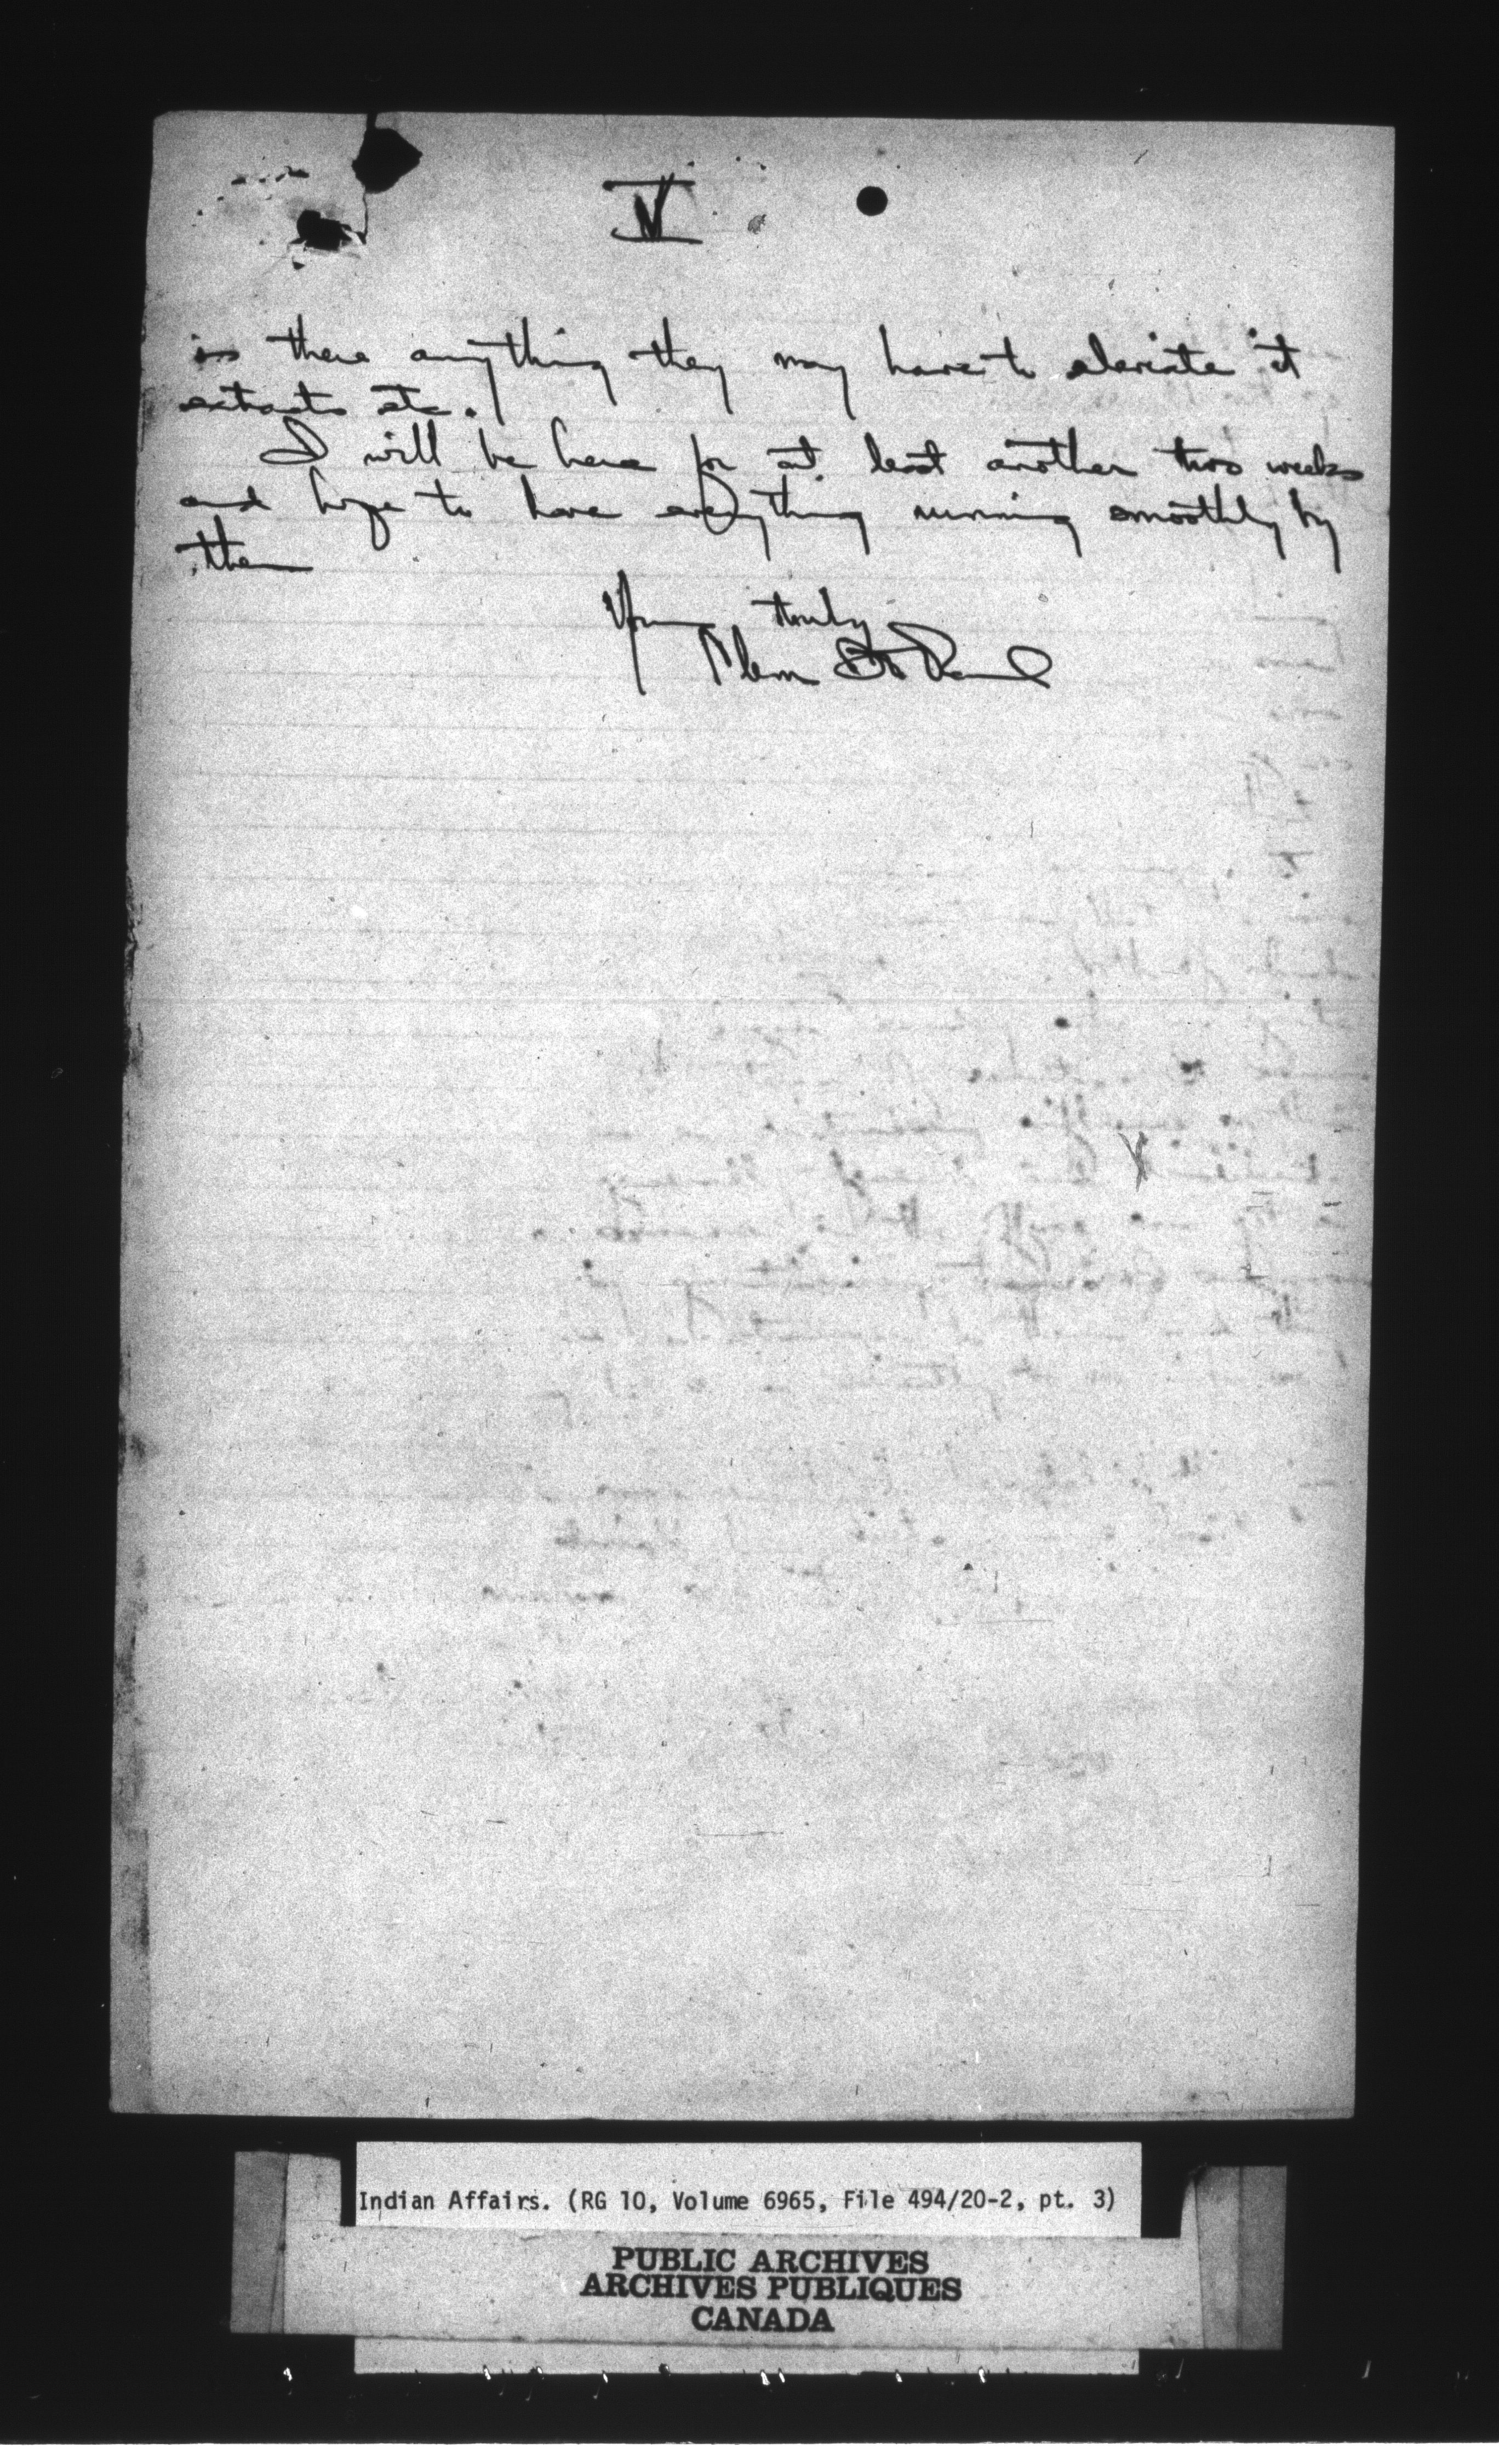 V
is there anything they may have to eleviate it
extracts etc.
I will be here for at least another two weeks
and hope to have everything running smoothly by
then
Yours truly
Clem St Paul
Indian Affairs. (RG 10, Volume 6965, File 494/20-2, pt. 3)
PUBLIC ARCHIVES
ARCHIVES PUBLIQUES
CANADA